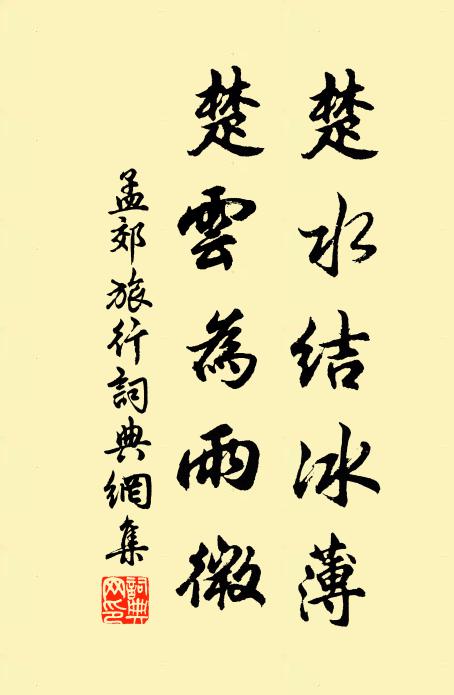 楚水结冰薄
楚雲為雨微
孟郊旅行詞典網集
詞典